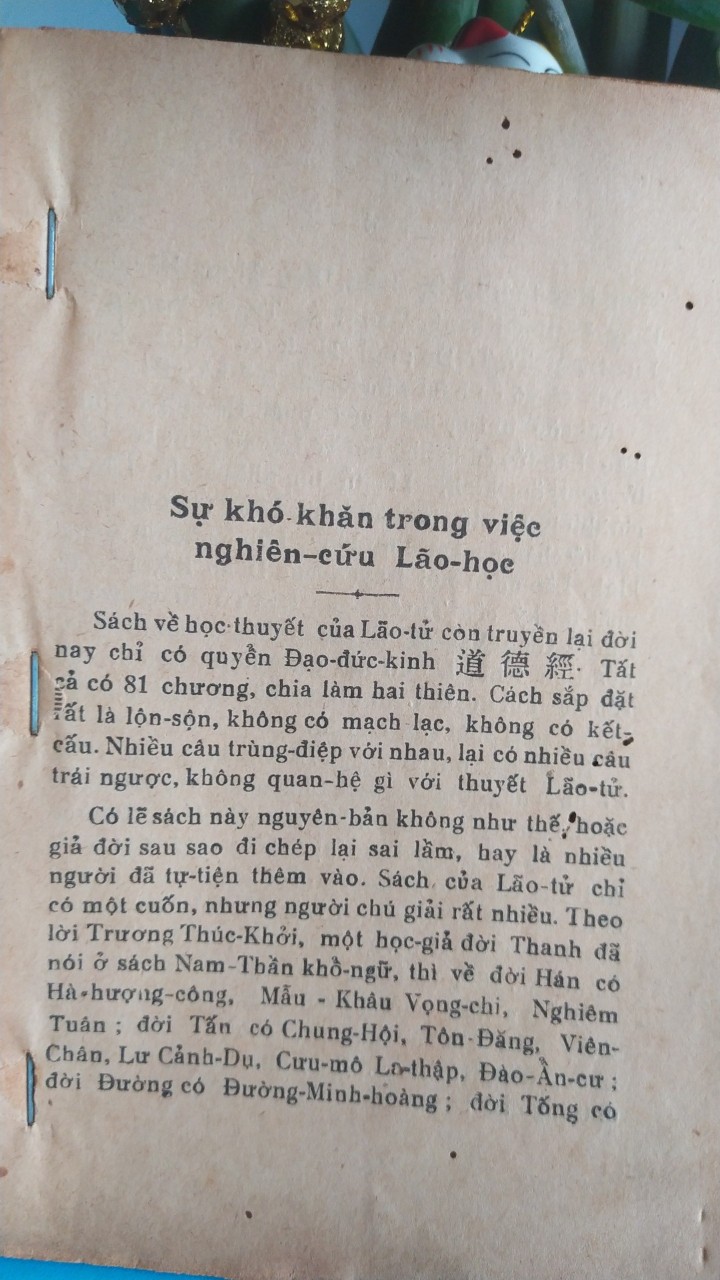 Sự khó-khăn trong việc
nghiên-cứu Lão-học
Sách về học-thuyết của Lão-tử còn truyền lại đời
nay chỉ có quyển Đạo-đức-kinh 道德經. Tất
cả có 81 chương, chia làm hai thiên. Cách sắp đặt
rất là lộn-sộn, không có mạch lạc, không có kết-
cấu. Nhiều câu trùng-điệp với nhau, lại có nhiều câu
trái ngược, không quan-hệ gì với thuyết Lão-tử.
Có lẽ sách này nguyên-bản không như thế, hoặc
giả đời sau sao đi chép lại sai lầm, hay là nhiều
người đã tự-tiện thêm vào. Sách của Lão-tử chỉ
có một cuốn, nhưng người chú giải rất nhiều. Theo
lời Trương Thúc-Khởi, một học-giả đời Thanh đã
nói ở sách Nam-Thần khổ-ngữ, thì về đời Hán có
Hà-hượng-công, Mẫu - Khâu Vọng-chi, Nghiêm
Tuân ; đời Tấn có Chung-Hội, Tôn-Đăng, Viên-
Chân, Lư Cảnh-Dụ, Cưu-mô La-thập, Đào-Ẩn-cư ;
đời Đường có Đường-Minh-hoàng ; đời Tống có